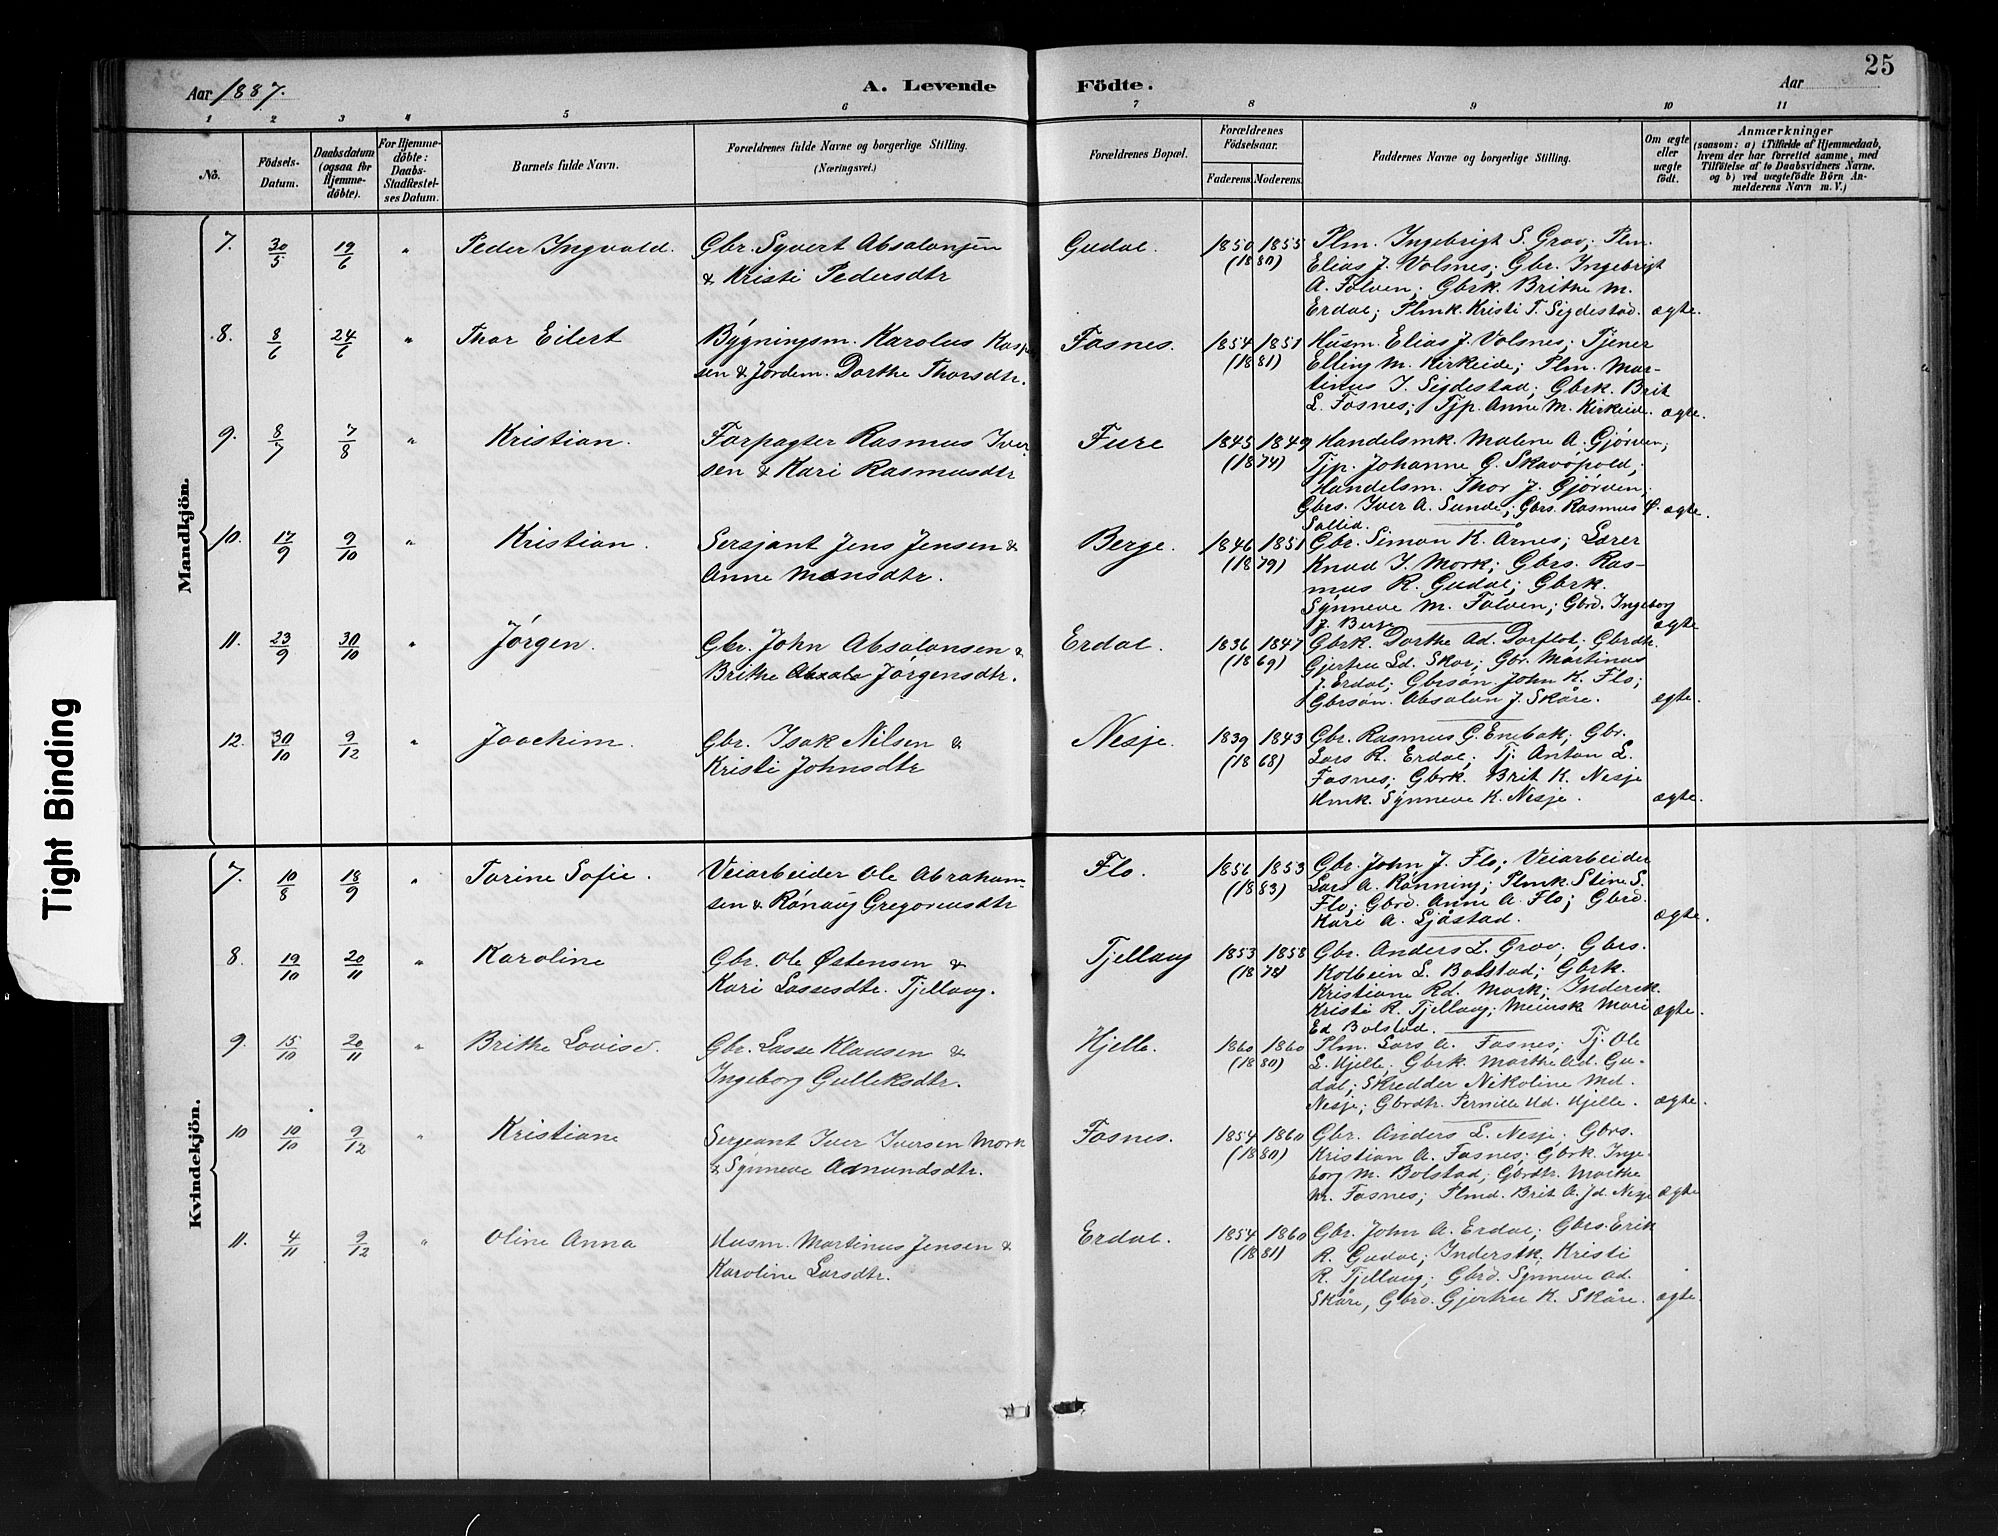 25
Aar 1887.
A. Levende Födte.
Aar
1 2 3 4 5 6 7 8 9 10 11
No.
Födsels-Datum.
Daabsdatum (ogsaa for Hjemme-döbte).
For Hjemme-döbte: Daabs-Stadfæstel-ses Datum.
Barnets fulde Navn.
Forældrenes fulde Navne og borgerlige Stilling.
(Næringsvei.)
Forældrenes Bopæl.
Forældrenes Födselsaar.
Faderens. Moderens.
Faddernes Navne og borgerlige Stilling.
Om ægte eller uægte födt.
Anmærkninger
(saasom: a) i Tilfælde af Hjemmedaab, hvem der har forrettet samme, med Tilföielse af to Daabsvidners Navne. og b) ved uægtefödte Börn An-melderens Navn m. V.)
Mandkjön.
7. 30/5 19/6 " Peder Ingvald. Gbr. Syvert Absalonsen
& Kristi Pedersdtr
Gudal. 1850 1855 (1880)
Plm. Ingebrigt S. Grov; Plm.
Elias J. Volsnes; Gbr. Ingebrigt
A. Folven; Gbrk. Brithe M.
Erdal; Plmk. Kristi T. Sigdestad. ægte.
8. 8/6 24/6 " Thor Eilert Bygningsm. Karolus Kasp
sen & Jordem. Dorthe Thorsdtr.
Fosnes. 1854 1851 (1881)
Husm. Elias J. Volsnes; Tjener
Elling M. Kirkeide; Plm. Mar-
tinus I. Sigdestad; Gbrk. Brit
L. Fosnes; Tjp. Anne M. Kirkeide. ægte.
9. 8/7 7/8 " Kristian. Forpagter Rasmus Iver
sen & Kari Rasmusdtr
Fure 1845 1849 (1874)
Handelsmk. Malene A. Gjørven;
Tjp. Johanne G. Skavøpold;
Handelsm. Thor J. Gjørven;
Gbrs. Iver A. Sunde; Gbrs. Rasmus Ø. ægte.
Sollid.
10. 17/9 9/10 " Kristian. Sersjant Jens Jensen &
Anne Monsdtr.
Berge. 1846 1851 (1879)
Gbr. Simon K. Årnes; Lærer
Knud I. Mork; Gbrs. Ras-
mus R. Gudal; Gbrk.
Synneve M. Folven; Gbrd. Ingeborg
J. Berge ægte
11. 23/9 30/10 " Jørgen. Gbr. John Absalonsen &
Brithe Absalo Jørgensdtr.
Erdal. 1836 1847 (1869)
Gbrk. Dorthe Ad. Dorflot; Gbrdtr.
Gjertru Ld. Skor; Gbr. Martinus
J. Erdal; Gbrsøn. John K. Flo;
Gbrsøn. Absalon J. Skåre. ægte.
12. 30/10 9/12 " Joachim. Gbr. Isak Nilsen &
Kristi Johnsdtr
Nesje. 1839 1843 (1868)
Gbr. Rasmus G. Enebak; Gbr.
Lars R. Erdal; Tj. Anton L.
Fosnes; Gbrk. Brit K. Nesje
Hmk. Synneve K. Nesje. ægte.
Kvindekjön.
7. 10/8 18/9 " Torine Sofie. Veiarbeider Ole Abraham-
sen & Rønaug Gregoriusdtr
Flo. 1856 1853 (1883)
Gbr. John J. Flo; Veiarbeider
Lars A. Rønning; Plmk. Stine S.
Flo; Gbrd. Anne A. Flo; Gbrd.
Kari A. Sjåstad. ægte.
8. 19/10 20/11 " Karoline Gbr. Ole Østensen &
Kari Lassesdtr. Tjellaug.
Tjellaug 1853 1858 (1878)
Gbr. Anders L. Grov; Gbrs.
Kolbein L. Bolstad; Gbrk.
Kristiane Rd. Mork; Inderstk.
Kristi R. Tjellaug; Meiersk Mari
Ed Bolstad. ægte.
9. 15/10 20/11 " Brithe Lovise. Gbr. Lasse Klausen &
Ingeborg Gulleksdtr.
Hjelle. 1860 1860 (1880)
Plm. Lars A. Fosnes; Tj. Ole
L. Hjelle; Gbrk Marthe Ad. Gu-
dal; Skredder Nikoline Md.
Nesje; Gbrdtr. Pernille Ud. Hjelle. ægte.
10 10/10 9/12 " Kristiane Sergeant Iver Iversen Mork
& Synneve Admundsdtr.
Fosnes. 1854 1860 (1880)
Gbr. Anders L. Nesje; Gbrs.
Kristian A. Fosnes; Gbrk. Inge-
borg M. Bolstad; Gbrdtr. Marthe
M. Fosnes; Plmd. Brit A. Jd. Nesje ægte
11. 4/11 9/12 " Oline Anna Husm. Martinus Jensen &
Karoline Larsdtr.
Erdal. 1854 1860 (1881)
Gbr. John A. Erdal; Gbrs. Erik
R. Gudal; Inderstk. Kristi
R. Tjellaug; Gbrd. Synneve Ad.
Skåre, Gbrd. Gjertru K. Skåre. ægte.
Tight Binding